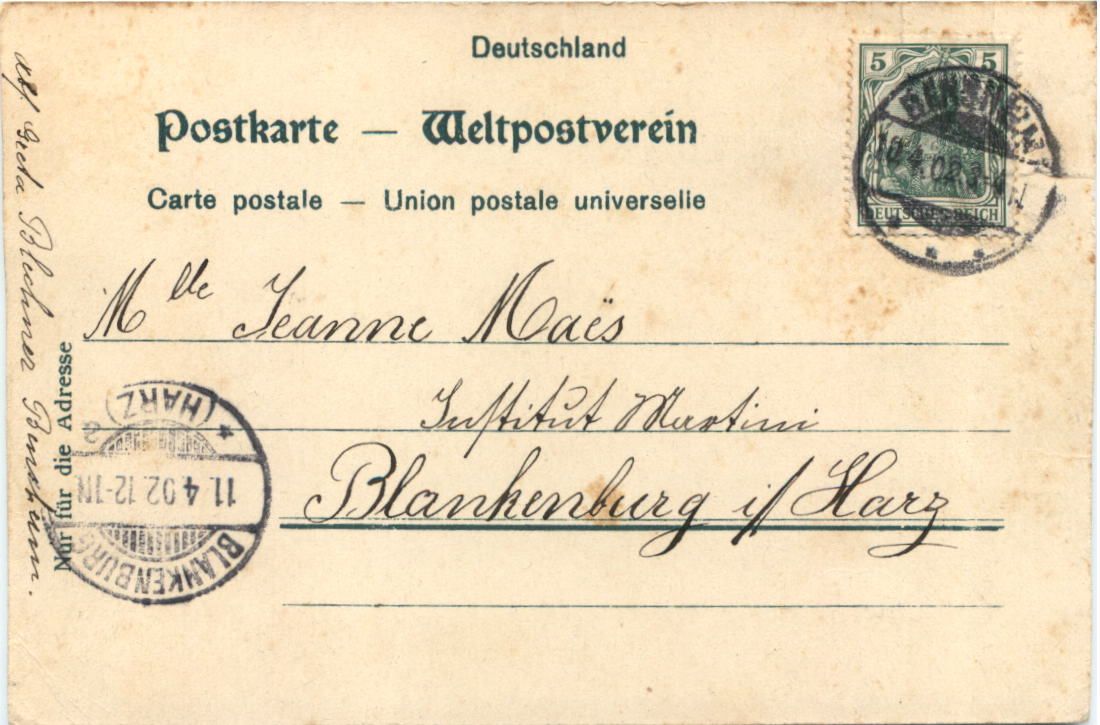 Deutschland
Postkarte — Weltpostverein
Carte postale — Union postale universelle
5 5
10.4.02. 3-4 N
DEUTSCHES REICH
Mlle Jeanne Maës
Institut Martini
Blankenburg i/Harz
Nur für die Adresse
abs. Greta Blechner
BLANKENBURG
11.4.02.12-1N.
* (HARZ) a